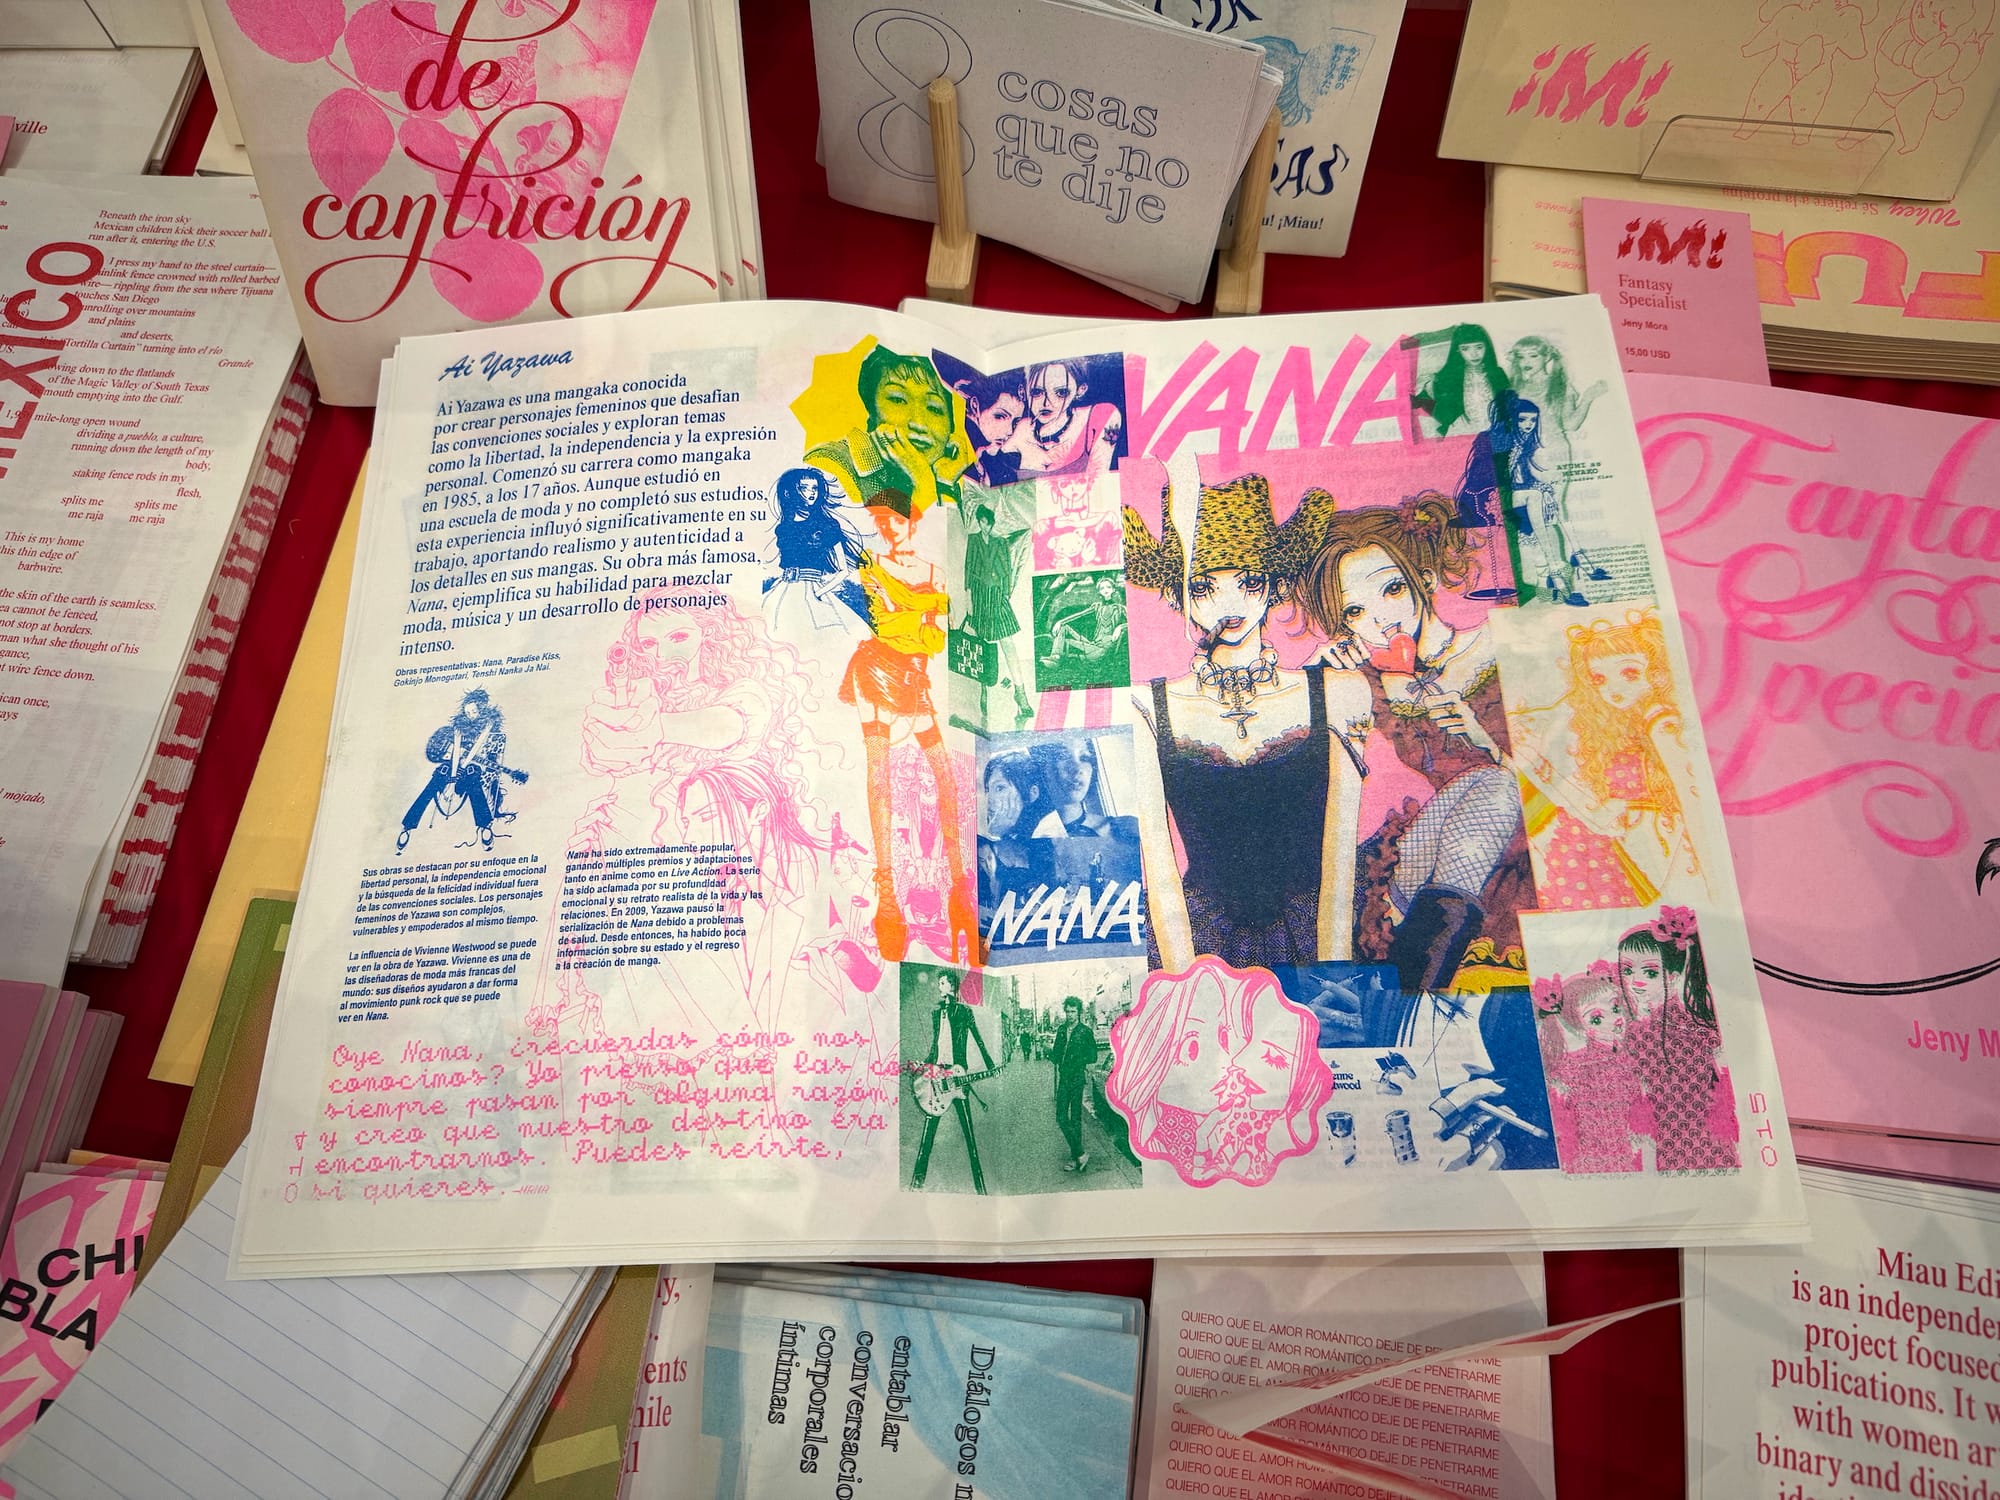 de
contrición
8
cosas
que no
te dije
¡Miau!
¡M!
¡M!
Fantasy
Specialist
Jeny Mora
15,00 USD
Whey
Se refiere a la proteína
ville
MEXICO
Beneath the iron sky
Mexican children kick their soccer ball
run after it, entering the U.S.
I press my hand to the steel curtain—
chainlink fence crowned with rolled barbed
wire— rippling from the sea where Tijuana
touches San Diego
unrolling over mountains
and plains
and deserts,
"Tortilla Curtain" turning into el río
Grande
flowing down to the flatlands
of the Magic Valley of South Texas
mouth emptying into the Gulf.
mile-long open wound
dividing a pueblo, a culture,
running down the length of my
body,
staking fence rods in my
flesh,
splits me splits me
me raja me raja
This is my home
this thin edge of
barbwire.
the skin of the earth is seamless.
sea cannot be fenced,
not stop at borders.
man what she thought of his
wire fence down.
mojado,
Ai Yazawa
Ai Yazawa es una mangaka conocida
por crear personajes femeninos que desafían
las convenciones sociales y exploran temas
como la libertad, la independencia y la expresión
personal. Comenzó su carrera como mangaka
en 1985, a los 17 años. Aunque estudió en
una escuela de moda y no completó sus estudios,
esta experiencia influyó significativamente en su
trabajo, aportando realismo y autenticidad a
los detalles en sus mangas. Su obra más famosa,
Nana, ejemplifica su habilidad para mezclar
moda, música y un desarrollo de personajes
intenso.
Obras representativas: Nana, Paradise Kiss,
Gokinjo Monogatari, Tenshi Nanka Ja Nai.
Sus obras se destacan por su enfoque en la
libertad personal, la independencia emocional
y la búsqueda de la felicidad individual fuera
de las convenciones sociales. Los personajes
femeninos de Yazawa son complejos,
vulnerables y empoderados al mismo tiempo.
La influencia de Vivienne Westwood se puede
ver en la obra de Yazawa. Vivienne es una de
las diseñadoras de moda más francas del
mundo: sus diseños ayudaron a dar forma
al movimiento punk rock que se puede
ver en Nana.
Nana ha sido extremadamente popular,
ganando múltiples premios y adaptaciones
tanto en anime como en Live Action. La serie
ha sido aclamada por su profundidad
emocional y su retrato realista de la vida y las
relaciones. En 2009, Yazawa pausó la
serialización de Nana debido a problemas
de salud. Desde entonces, ha habido poca
información sobre su estado y el regreso
a la creación de manga.
Oye Nana, ¿recuerdas cómo nos
conocimos? Yo pienso que las cosas
siempre pasan por alguna razón,
y creo que nuestro destino era
encontrarnos. Puedes reírte,
si quieres. —NANA
014
NANA
AYUMI as
MIWAKO
NANA
015
Fanta
Specia
Jeny M
CHI
BLA
Diálogos
entablar
conversacio
corporales
íntimas
QUIERO QUE EL AMOR ROMÁNTICO DEJE DE PENETRARME
QUIERO QUE EL AMOR ROMÁNTICO DEJE DE PENETRARME
QUIERO QUE EL AMOR ROMÁNTICO DEJE DE PENETRARME
QUIERO QUE EL AMOR ROMÁNTICO DEJE DE PENETRARME
Miau Edi
is an independe
project focused
publications. It w
with women ar
binary and disside